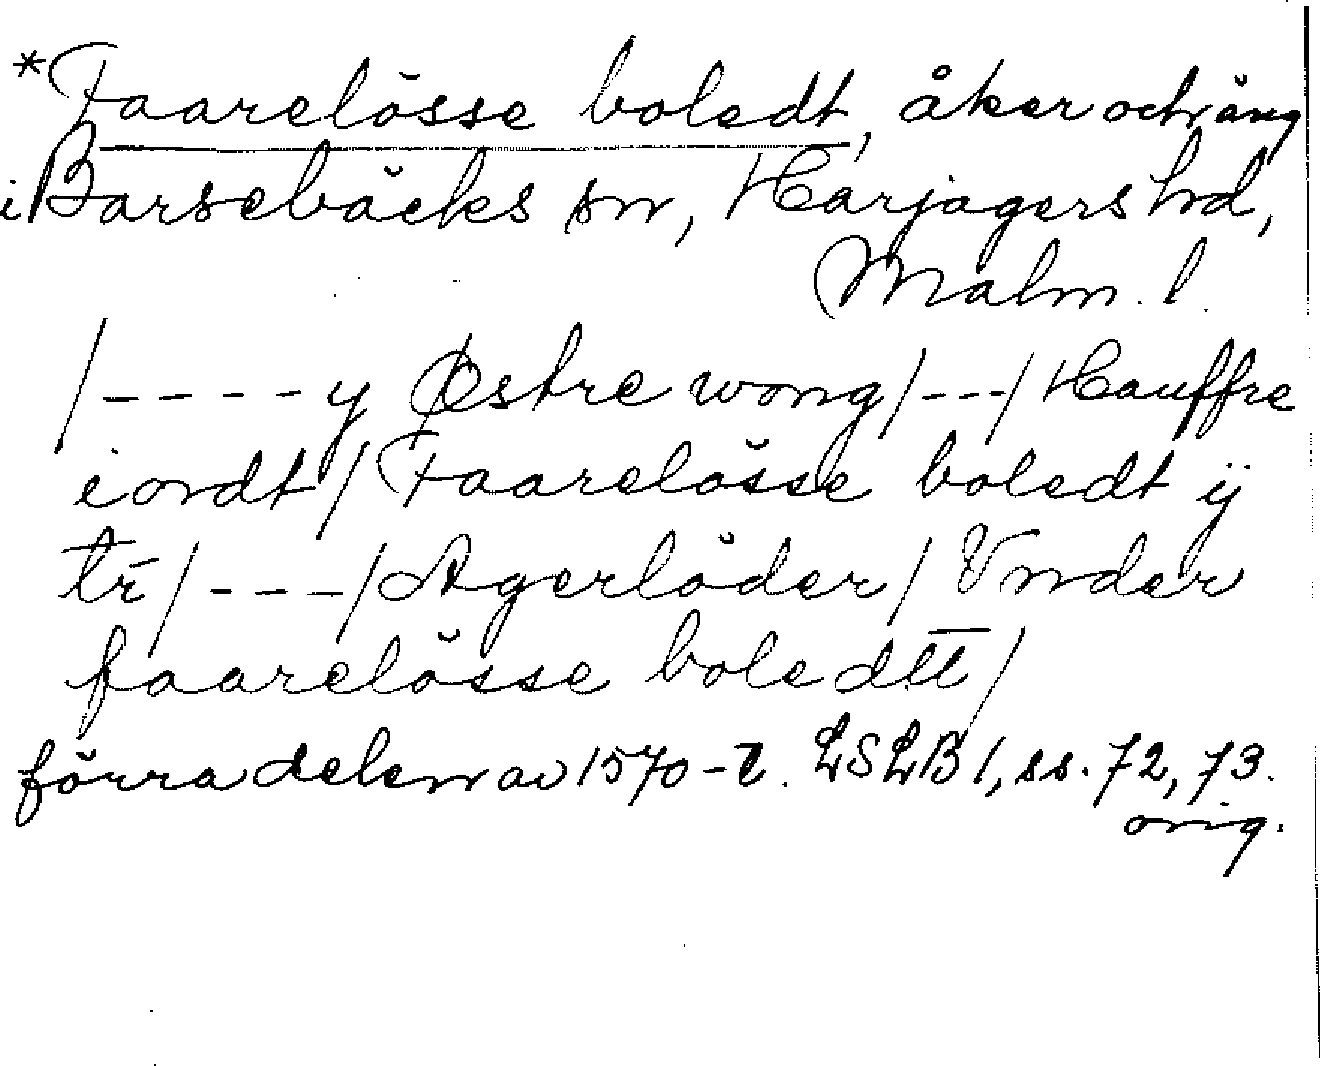 *Faarelösse boledt, åker och äng
i Barsebäcks sn, Harjagers hd,
Malm. l.
/----y Østre wong/---/Hauffre
iordt/Faarelösse boledt ij
tr/---/Agerlöder/Vnder
faarelösse boledtt/
förra delen av 1570-t. LSLB 1, ss. 72, 73.
orig.